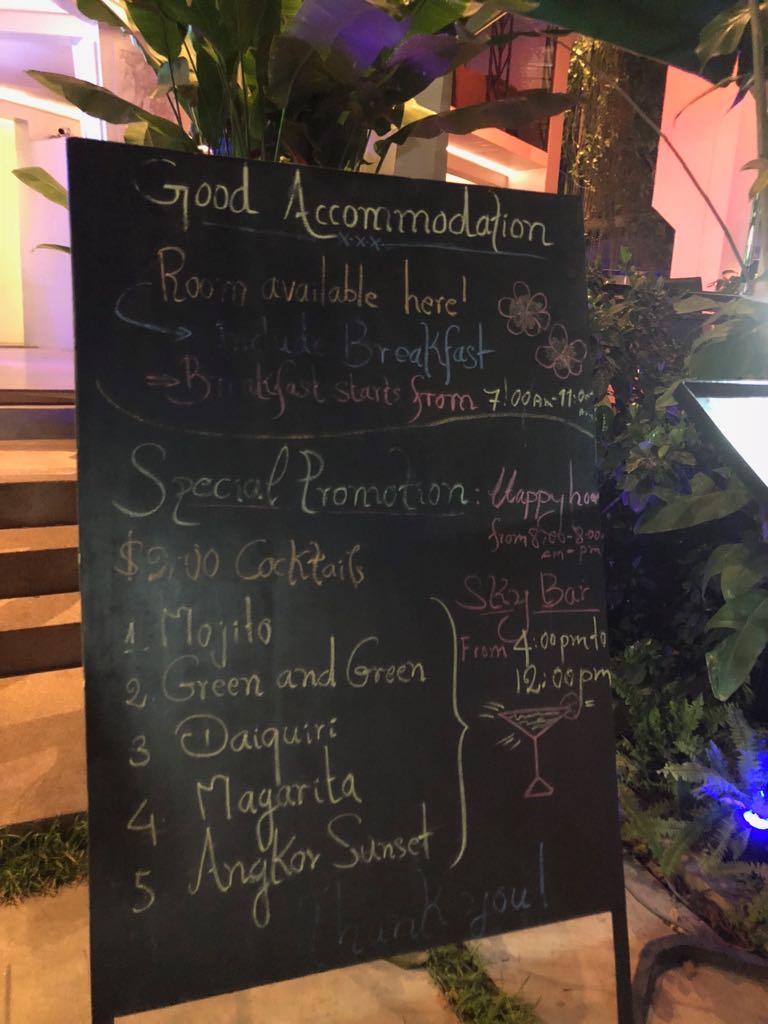 Good Accommodation
x.x.x
Room available here!
include Breakfast
⇒ Breakfast starts from 7:00AM-11:00AM
Special Promotion: Happy hour
from 8:00-8:00
am-pm
$2,00 Cocktails
1. Mojito
2. Green and Green
3 Daiquiri
4 Magarita
5 Angkor Sunset
Sky Bar
From 4:00pm to
12:00pm
Thank you!